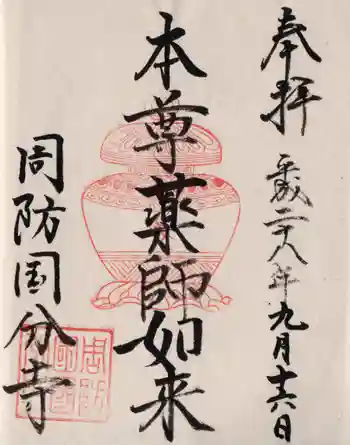 奉拝
平成二十八年九月十六日
本尊薬師如来
周防国分寺